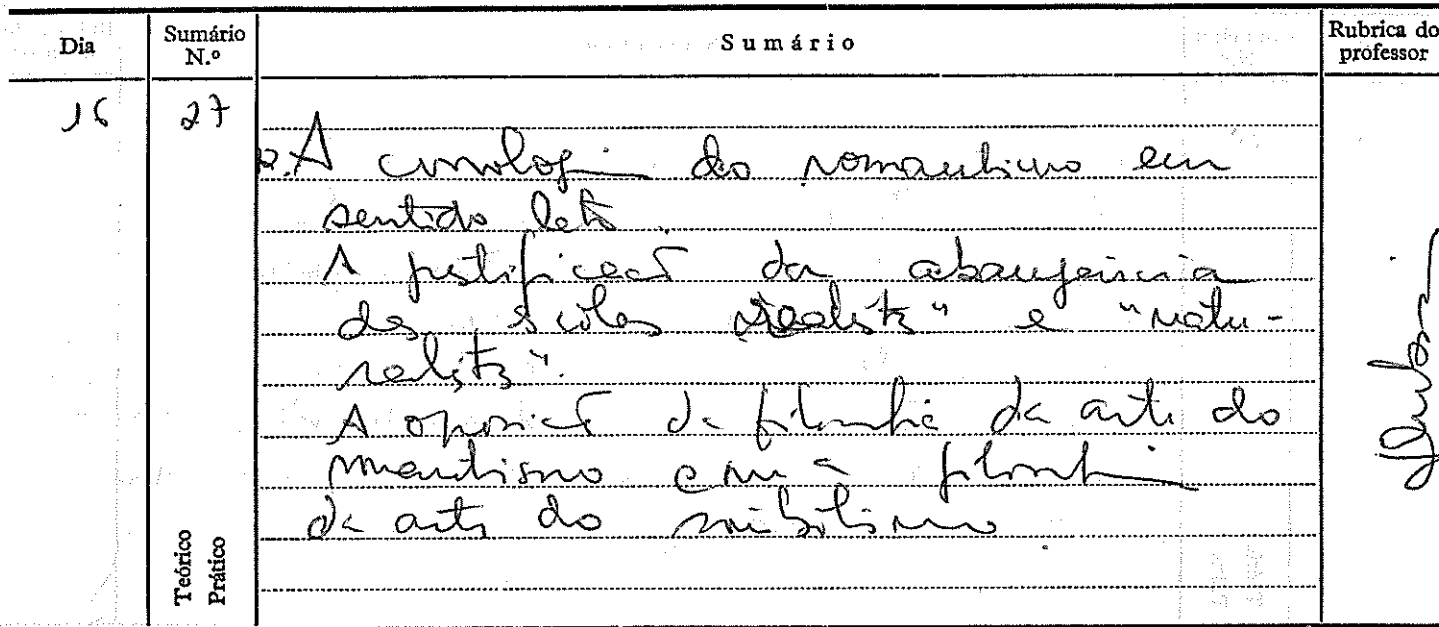 Dia
Sumário N.º
Sumário
Rubrica do professor
16
27
A cronologia do romantismo em
sentido lato.
A justificação da abrangência
das escolas "realista" e "natu-
ralista".
A oposição da filosofia da arte do
romantismo com a filosofia
da arte do simbolismo
Teórico
Prático